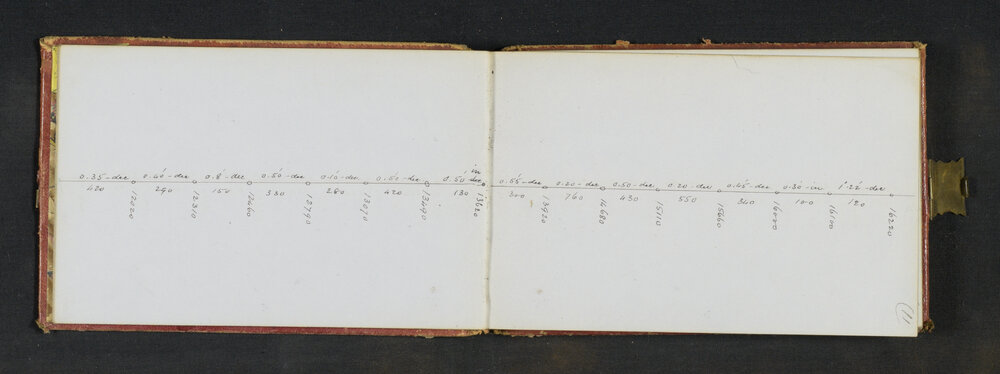 0.35-dec 0.40-dec 0.8-dec 0.50-dec 0.10-dec 0.50-dec 0.50 in
420 290 150 330 280 420 130
12020 12310 12460 12790 13070 13490 13620
0.55-dec 0.20-dec 0.50-dec 0.20-dec 0.45-dec 0.30-in 1.22-dec
300 760 430 550 340 100 120
13920 14680 15110 15660 16000 16100 16220
11